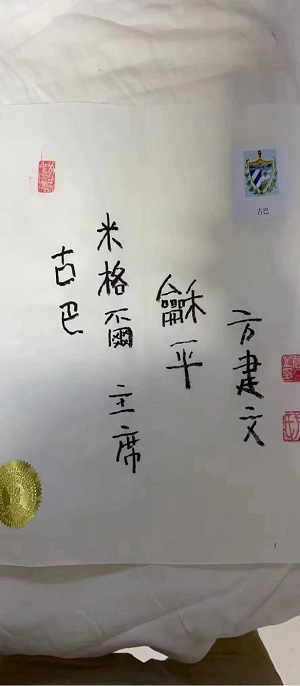 古巴
古巴
米格爾 主席
龢平
方建文